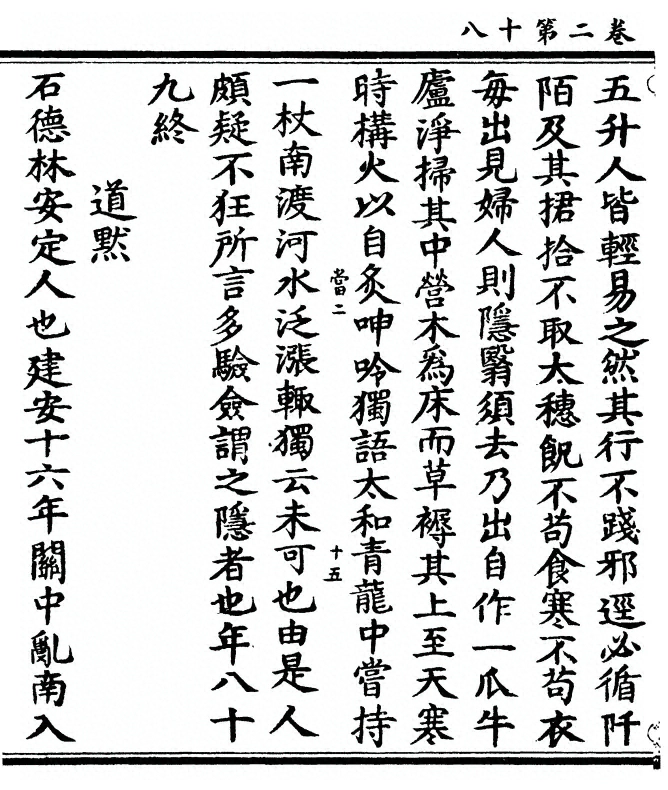 卷二第十八
五升人皆輕易之然其行不踐邪逕必循阡
陌及其捃拾不取太穗飢不苟食寒不苟衣
毎出見婦人則隱翳須去乃出自作一瓜牛
廬淨掃其中營木爲床而草褥其上至天寒
時構火以自炙呻吟獨語太和青龍中嘗持
當二
十五
一杖南渡河水泛漲輙獨云未可也由是人
頗疑不狂所言多驗僉謂之隱者也年八十
九終
道默
石德林安定人也建安十六年關中亂南入